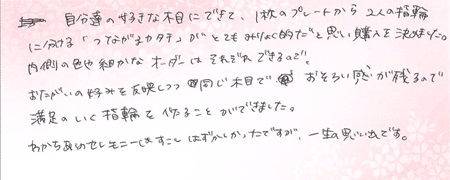 自分達の好きな木目にできて、1枚のプレートから2人の指輪
に分ける「つながるカタチ」がとてもみりょく的だと思い購入を決めました。
内側の色や細かなオーダーはそれぞれできるので、
おたがいの好みを反映しつつ同じ木目でおそろい感が残るので
満足のいく指輪を作ることができました。
わかちあいのセレモニーはすこしはずかしかったですが、一生の思い出です。